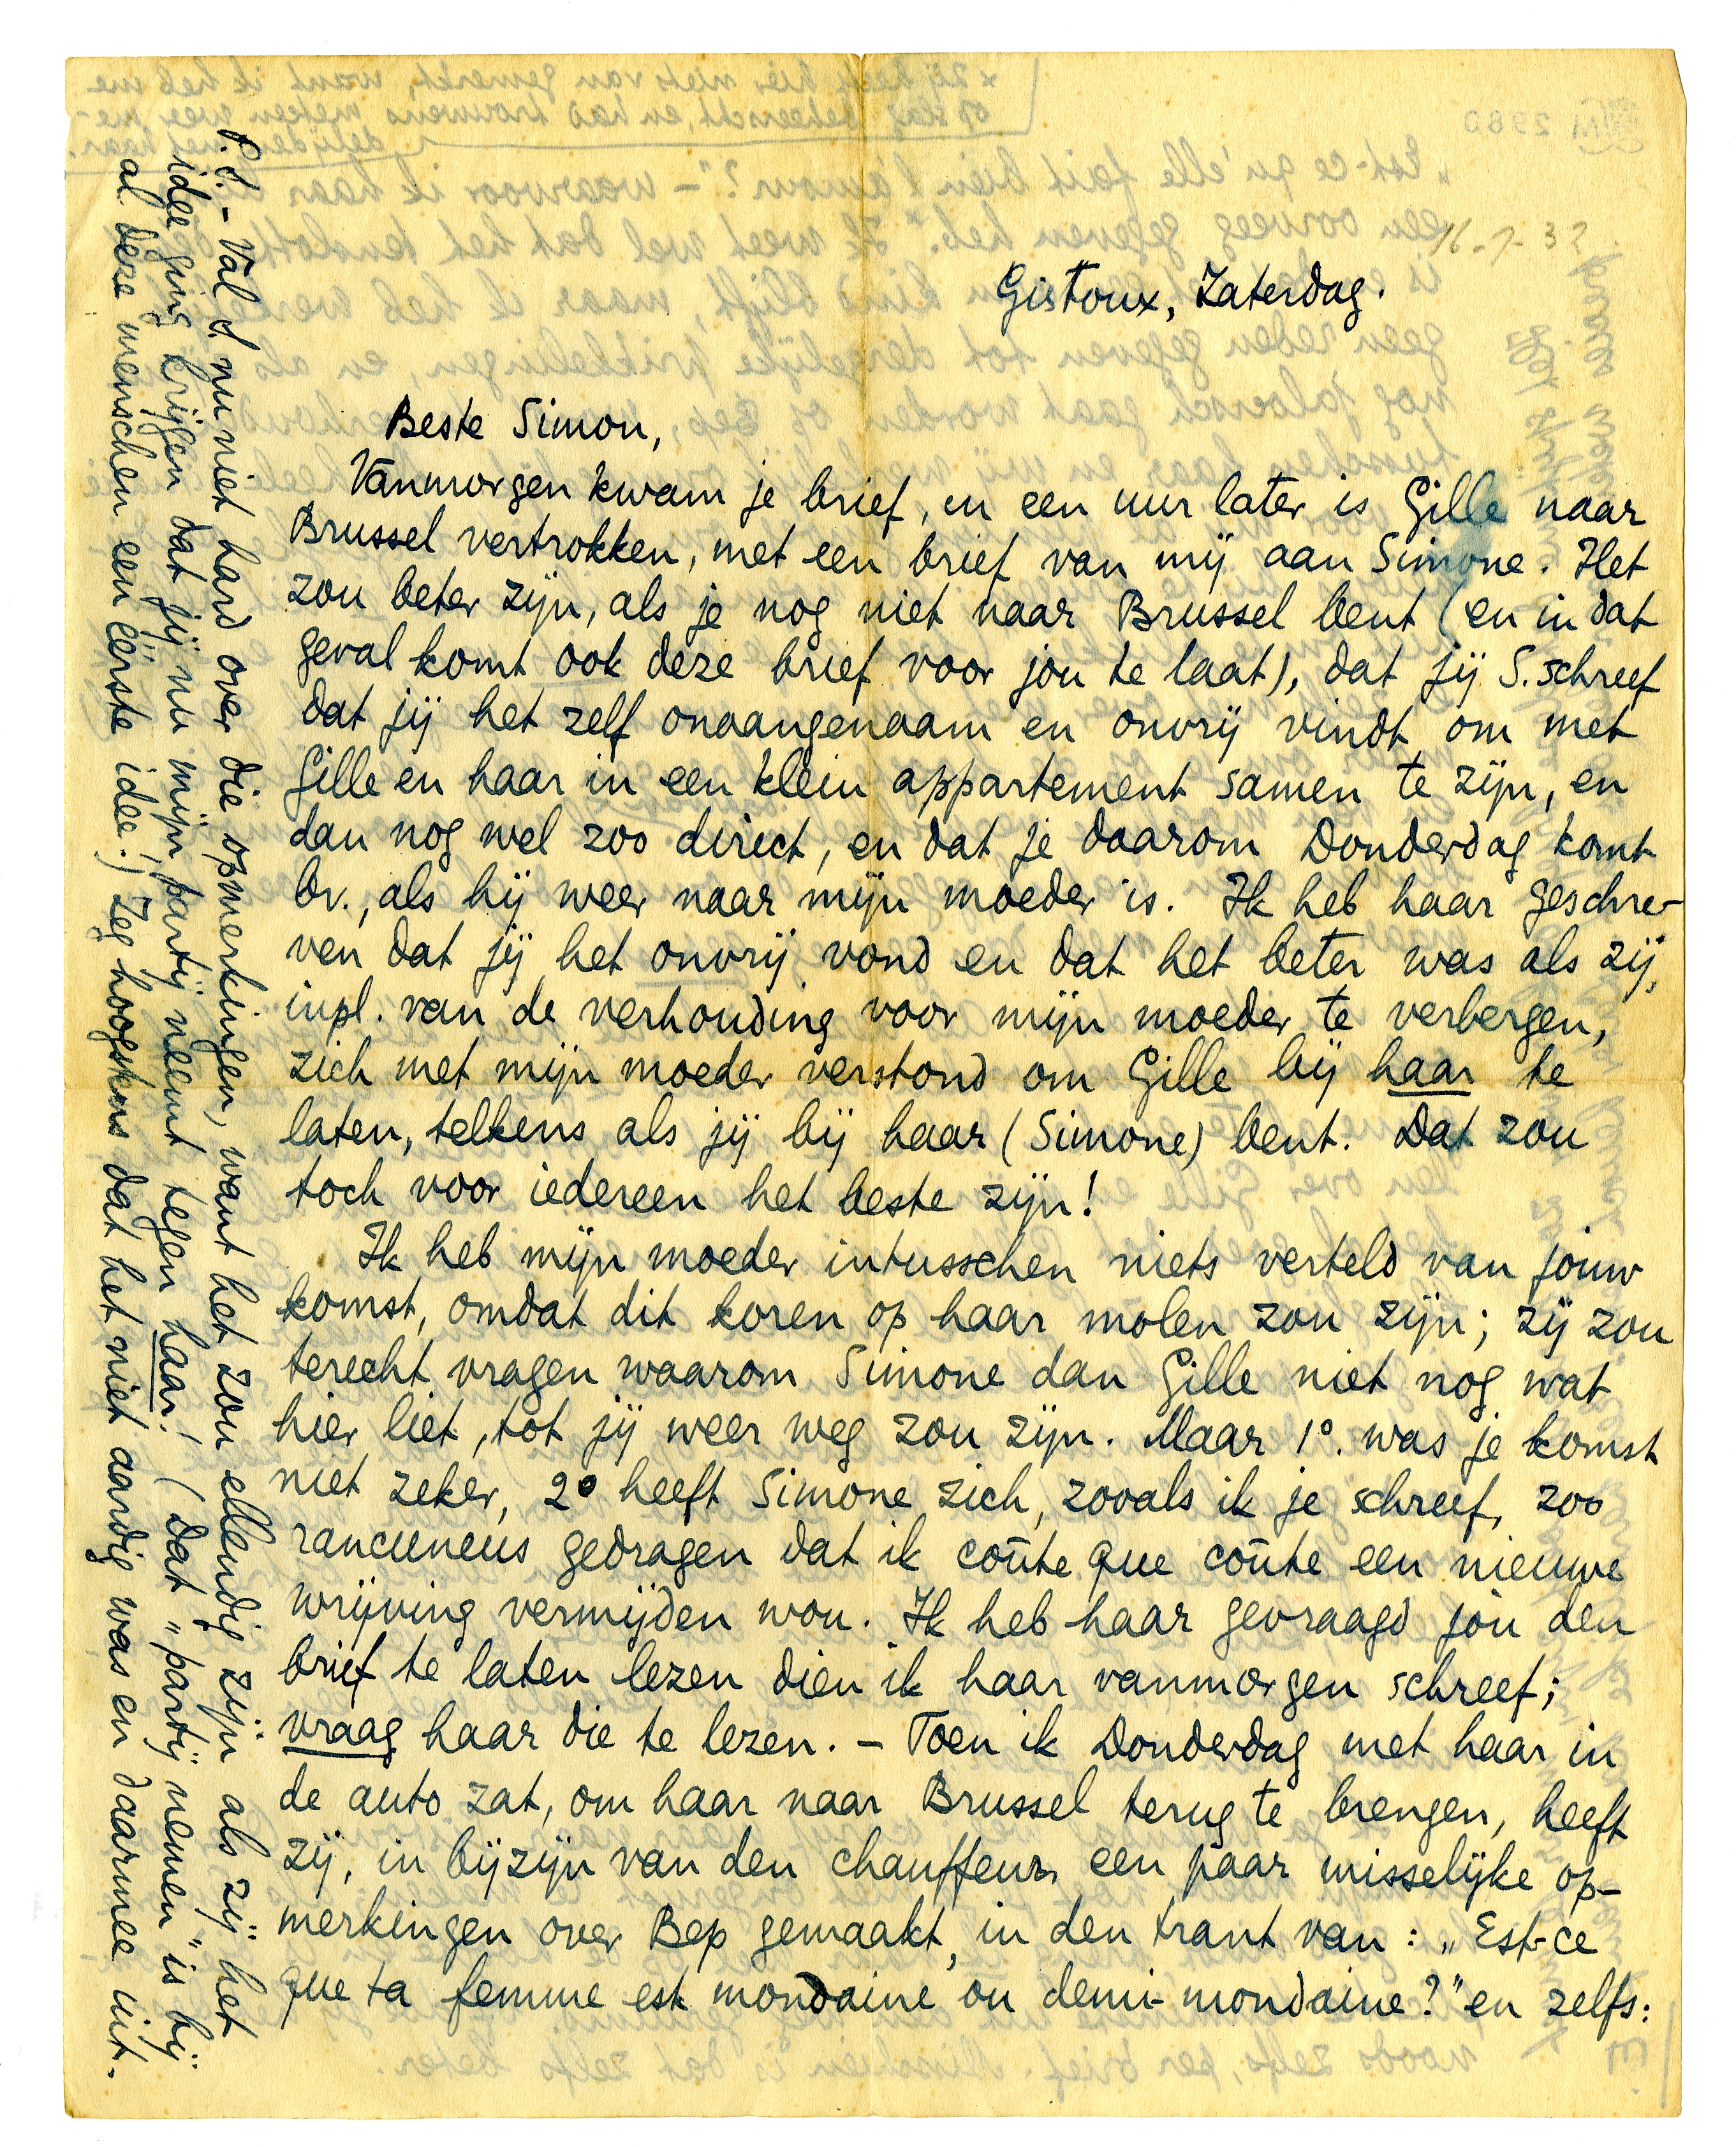 16-7-32
Gistoux, Zaterdag.
Beste Simon,
Vanmorgen kwam je brief, en een uur later is Gille naar
Brussel vertrokken, met een brief van mij aan Simone. Het
zou beter zijn, als je nog niet naar Brussel bent (en in dat
geval komt ook deze brief voor jou te laat), dat jij S. schreef
dat jij het zelf onaangenaam en onvrij vindt om met
Gille en haar in een klein appartement samen te zijn, en
dan nog wel zoo direct, en dat je daarom Donderdag komt
bv., als hij weer naar mijn moeder is. Ik heb haar geschre-
ven dat jij het onvrij vond en dat het beter was als zij,
inpl. van de verhouding voor mijn moeder te verbergen,
zich met mijn moeder verstond om Gille bij haar te
laten, telkens als jij bij haar (Simone) bent. Dat zou
toch voor iedereen het beste zijn!
Ik heb mijn moeder intusschen niets verteld van jouw
komst, omdat dit koren op haar molen zou zijn; zij zou
terecht vragen waarom Simone dan Gille niet nog wat
hier liet, tot jij weer weg zou zijn. Maar 1°. was je komst
niet zeker, 2° heeft Simone zich, zooals ik je schreef, zoo
rancuneus gedragen dat ik coûte que coûte een nieuwe
wrijving vermijden wou. Ik heb haar gevraagd jou den
brief te laten lezen dien ik haar vanmorgen schreef;
vraag haar die te lezen. – Toen ik Donderdag met haar in
de auto zat, om haar naar Brussel terug te brengen, heeft
zij, in bijzijn van den chauffeur, een paar misselijke op-
merkingen over Bep gemaakt, in den trant van: „Est-ce
que ta femme est mondaine ou demi-mondaine?" en zelfs:
P.S. – Val S. nu niet hard over die opmerkingen, want het zou ellendig zijn als zij het
idee ging krijgen dat jij nu mijn partij neemt tegen haar! (Dat „partij nemen" is bij
al deze menschen een eerste idee!) Zeg hoogstens dat het niet aardig was en daarmee uit.